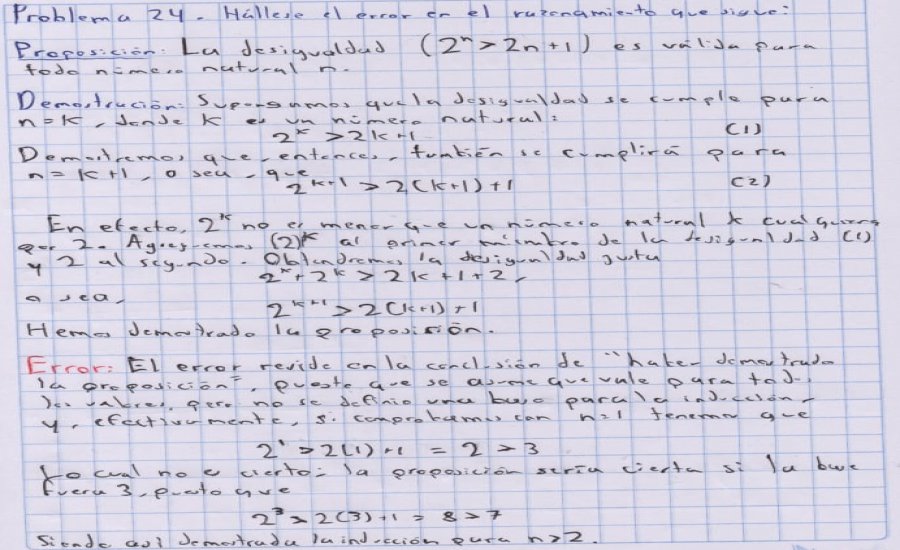 Problema 24. Hállese el error en el razonamiento que sigue:
Proposición: La desigualdad (2ⁿ > 2n+1) es válida para
todo número natural n.
Demostración: Supongamos que la desigualdad se cumple para
n=k, donde k es un número natural:
2ᵏ > 2k+1 (1)
Demostremos que, entonces, también se cumplirá para
n=k+1, o sea, que
2ᵏ⁺¹ > 2(k+1)+1 (2)
En efecto, 2ᵏ no es menor que un número natural k cualquiera
por 2. Agreguemos (2)ᵏ al primer miembro de la desigualdad (1)
y 2 al segundo. Obtendremos la desigualdad justa
2ᵏ+2ᵏ > 2k+1+2,
o sea,
2ᵏ⁺¹ > 2(k+1)+1
Hemos demostrado la proposición.
Error: El error reside en la conclusión de "haber demostrado
la proposición", puesto que se asume que vale para todos
los valores, pero no se definio una base para la inducción,
y, efectivamente, si comprobamos con n=1 tenemos que
2¹ > 2(1)+1 = 2 > 3
Lo cual no es cierto; la proposición sería cierta si la base
fuera 3, puesto que
2³ > 2(3)+1 = 8 > 7
Siendo así demostrada la inducción para n>2.